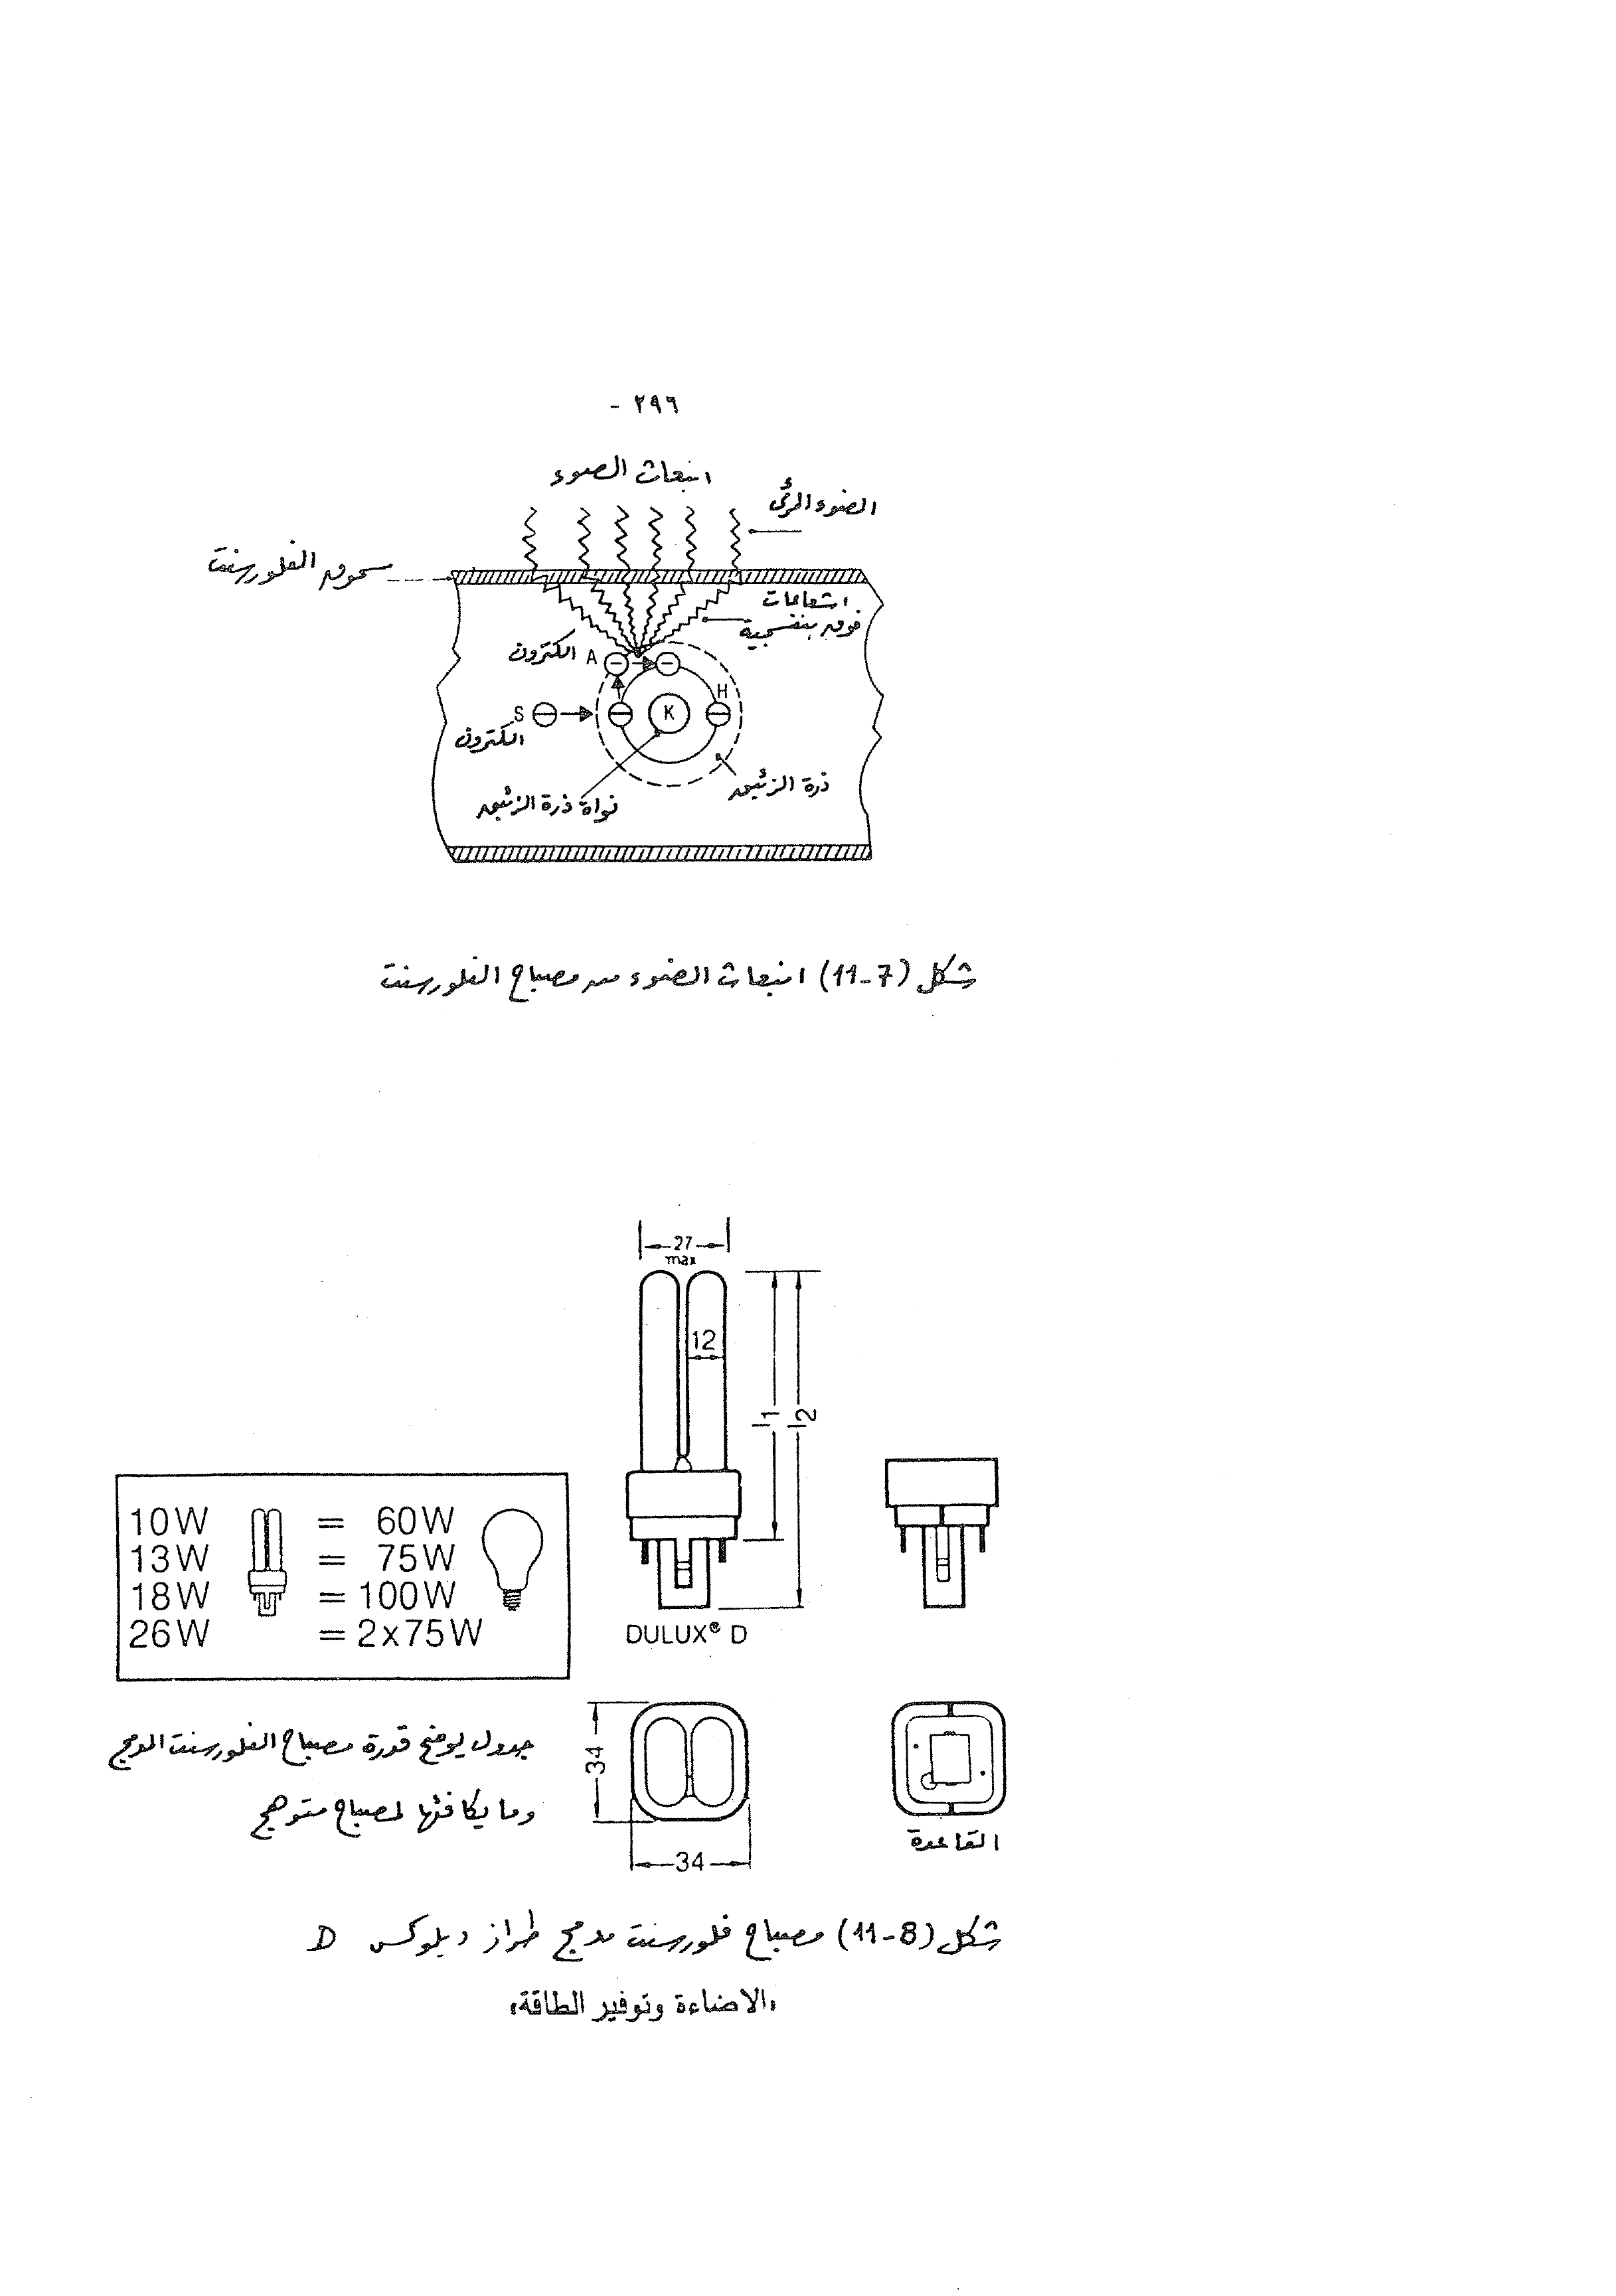 ٢٩٦ -
انبعاث الضوء
الضوء المرئى
مسحوق الفلورسنت
اشعاعات
فوق بنفسجية
الكترون A
H
S
K
الكترون
ذرة الزئبق
نواة ذرة الزئبق
شكل (7-11) انبعاث الضوء من مصباح الفلورسنت
27
max
12
l1
l2
10W = 60W
13W = 75W
18W = 100W
26W = 2x75W
DULUX® D
34
34
جدول يوضح قدرة مصباح الفلورسنت المدمج
وما يكافئها لمصباح متوهج
القاعدة
شكل (8-11) مصباح فلورسنت مدمج طراز ديلوكس D
«الاضاءة وتوفير الطاقة»